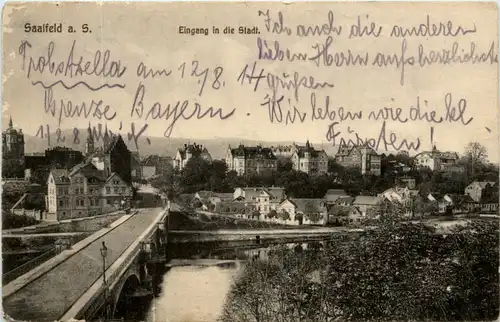 Saalfeld a. S.
Eingang in die Stadt.
Probstzella am 12/8. 14
Grenze Bayern.
Ich auch die anderen
lieben Herrn aufs herzlichste
grüßen
Wir leben wie die kl
Fürsten!